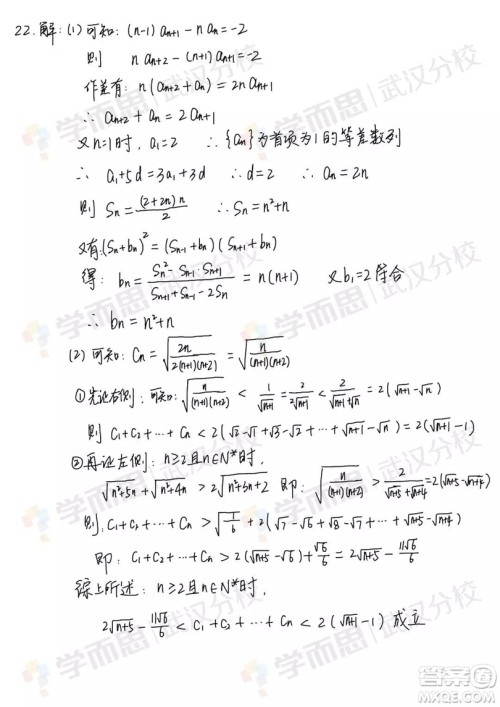 22.解:(1)可知:(n-1)aₙ₊₁-naₙ=-2
则 naₙ₊₂-(n+1)aₙ₊₁=-2
作差有:n(aₙ₊₂+aₙ)=2naₙ₊₁
∴ aₙ₊₂+aₙ=2aₙ₊₁
又n=1时,a₁=2 ∴{aₙ}为首项为1的等差数列
∴ a₁+5d=3a₁+3d ∴d=2 ∴aₙ=2n
则 Sₙ=(2+2n)n/2 ∴Sₙ=n²+n
又有:(Sₙ+bₙ)²=(Sₙ₋₁+bₙ)(Sₙ₊₁+bₙ)
得: bₙ=(Sₙ²-Sₙ₋₁·Sₙ₊₁)/(Sₙ₊₁+Sₙ₋₁-2Sₙ)=n(n+1) 又b₁=2符合
∴ bₙ=n²+n
(2)可知:Cₙ=√(2n/(2(n+1)(n+2)))=√(n/((n+1)(n+2)))
①先证右侧:可知:√(n/((n+1)(n+2)))<1/√(n+1)=2/(2√(n+1))<2/(√(n+1)+√n)=2(√(n+1)-√n)
则 C₁+C₂+…+Cₙ<2(√2-√1+√3-√2+…+√(n+1)-√n)=2(√(n+1)-1)
②再证左侧:n≥2且n∈N*时,
√(n²+5n)+√(n²+4n)>2√(n²+3n+2) 即:√(n/((n+1)(n+2)))>2/(√(n+5)+√(n+4))=2(√(n+5)-√(n+4))
则,C₁+C₂+…+Cₙ>√(1/6)+2(√7-√6+√8-√7+…+√(n+5)-√(n+4))
即:C₁+C₂+…+Cₙ>2(√(n+5)-√6)+√6/6=2√(n+5)-11√6/6
综上所述:n≥2且n∈N*时,
2√(n+5)-11√6/6<C₁+C₂+…+Cₙ<2(√(n+1)-1)成立
学而思 武汉分校
答案圈
MXQE.COM